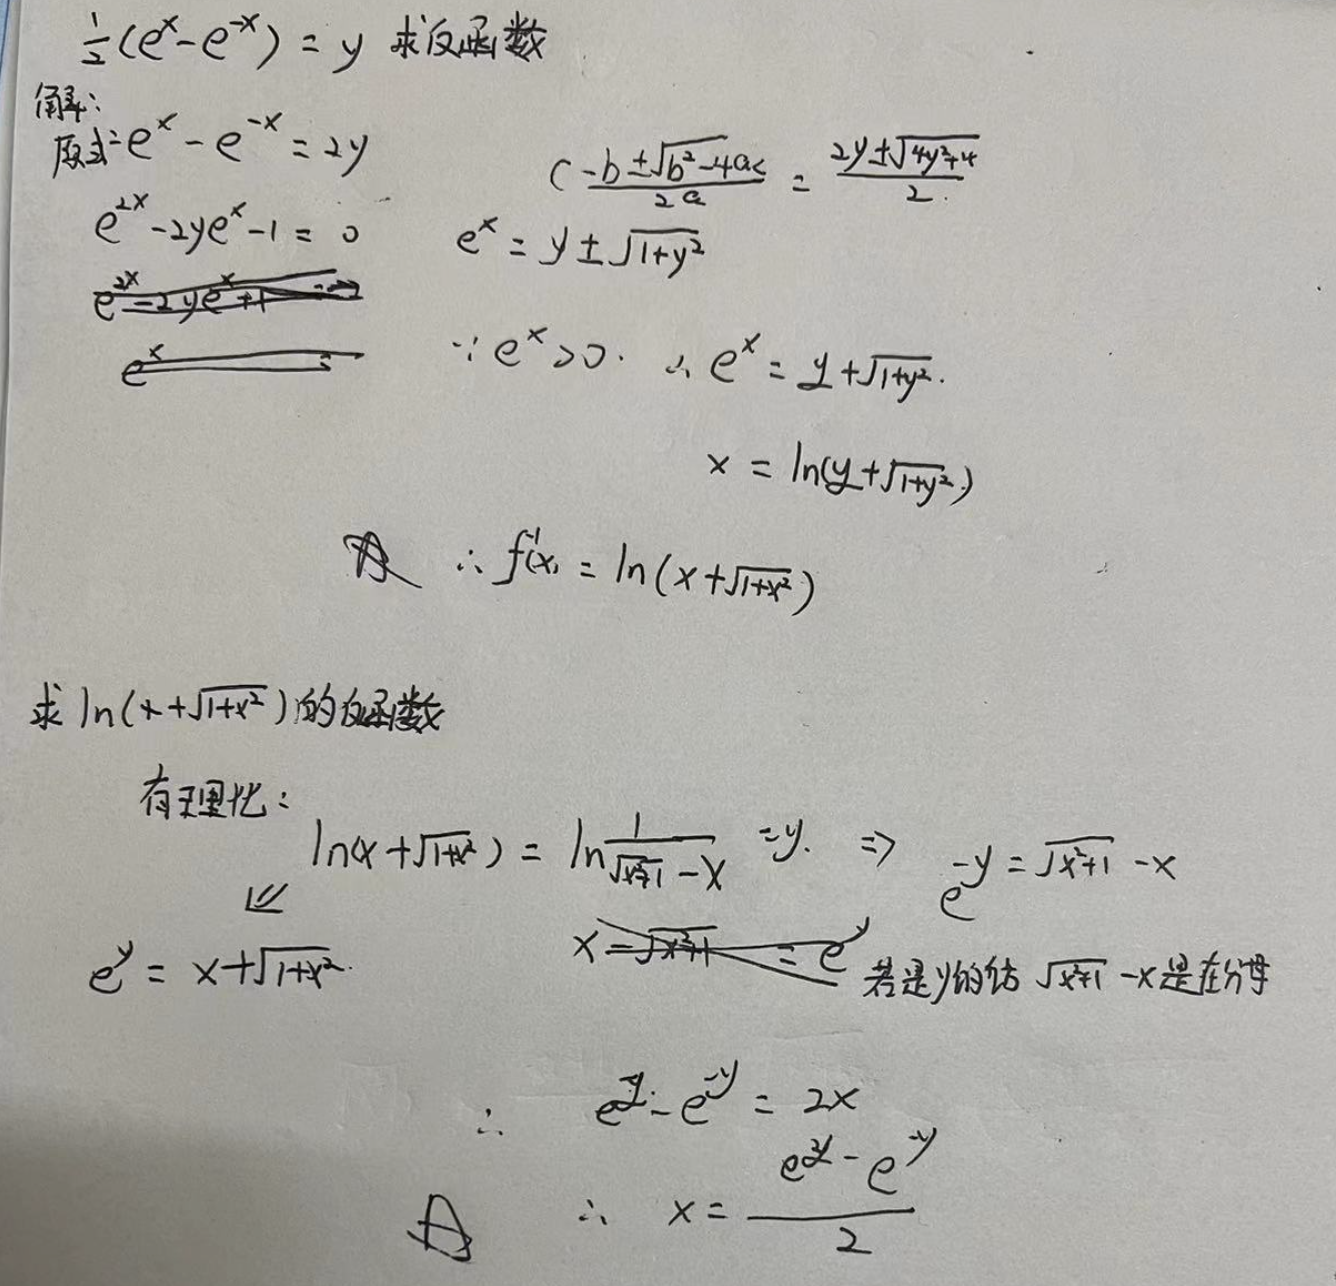 ½(e^x - e^-x) = y 求反函数
解:
原式=e^x - e^-x = 2y
e^2x - 2ye^x - 1 = 0
e^2x - 2ye^x + 1
e^x =
( -b ± √(b² - 4ac) / 2a = (2y ± √(4y² + 4)) / 2.
e^x = y ± √(1+y²)
∵ e^x > 0. ∴ e^x = y + √(1+y²).
x = ln(y + √(1+y²))
∴ f^-1(x) = ln(x + √(1+x²))
求 ln(x + √(1+x²)) 的反函数
有理化:
ln(x + √(1+x²)) = ln 1/(√(x²+1) - x) = y. ⇒ e^-y = √(x²+1) - x
⇙
e^y = x + √(1+x²).
x - √(x²+1) = e^y
若是y的话 √(x²+1) - x 是在分母
∴ e^y - e^-y = 2x
∴ x = (e^y - e^-y) / 2